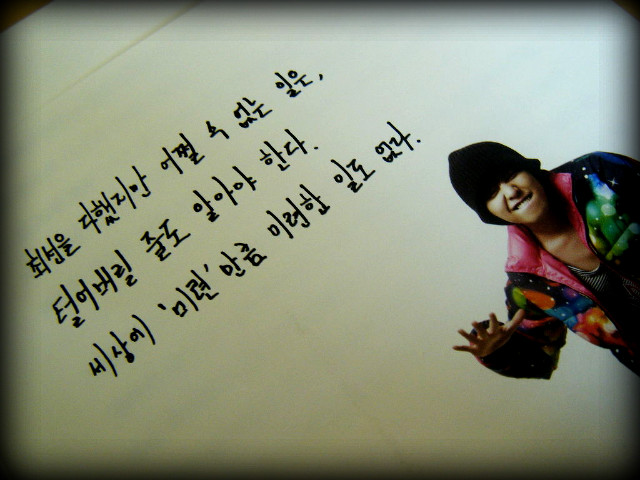 최선을 다했지만 어쩔 수 없는 일은,
털어버릴 줄도 알아야 한다.
세상에 '미련' 만큼 미련한 일도 없다.